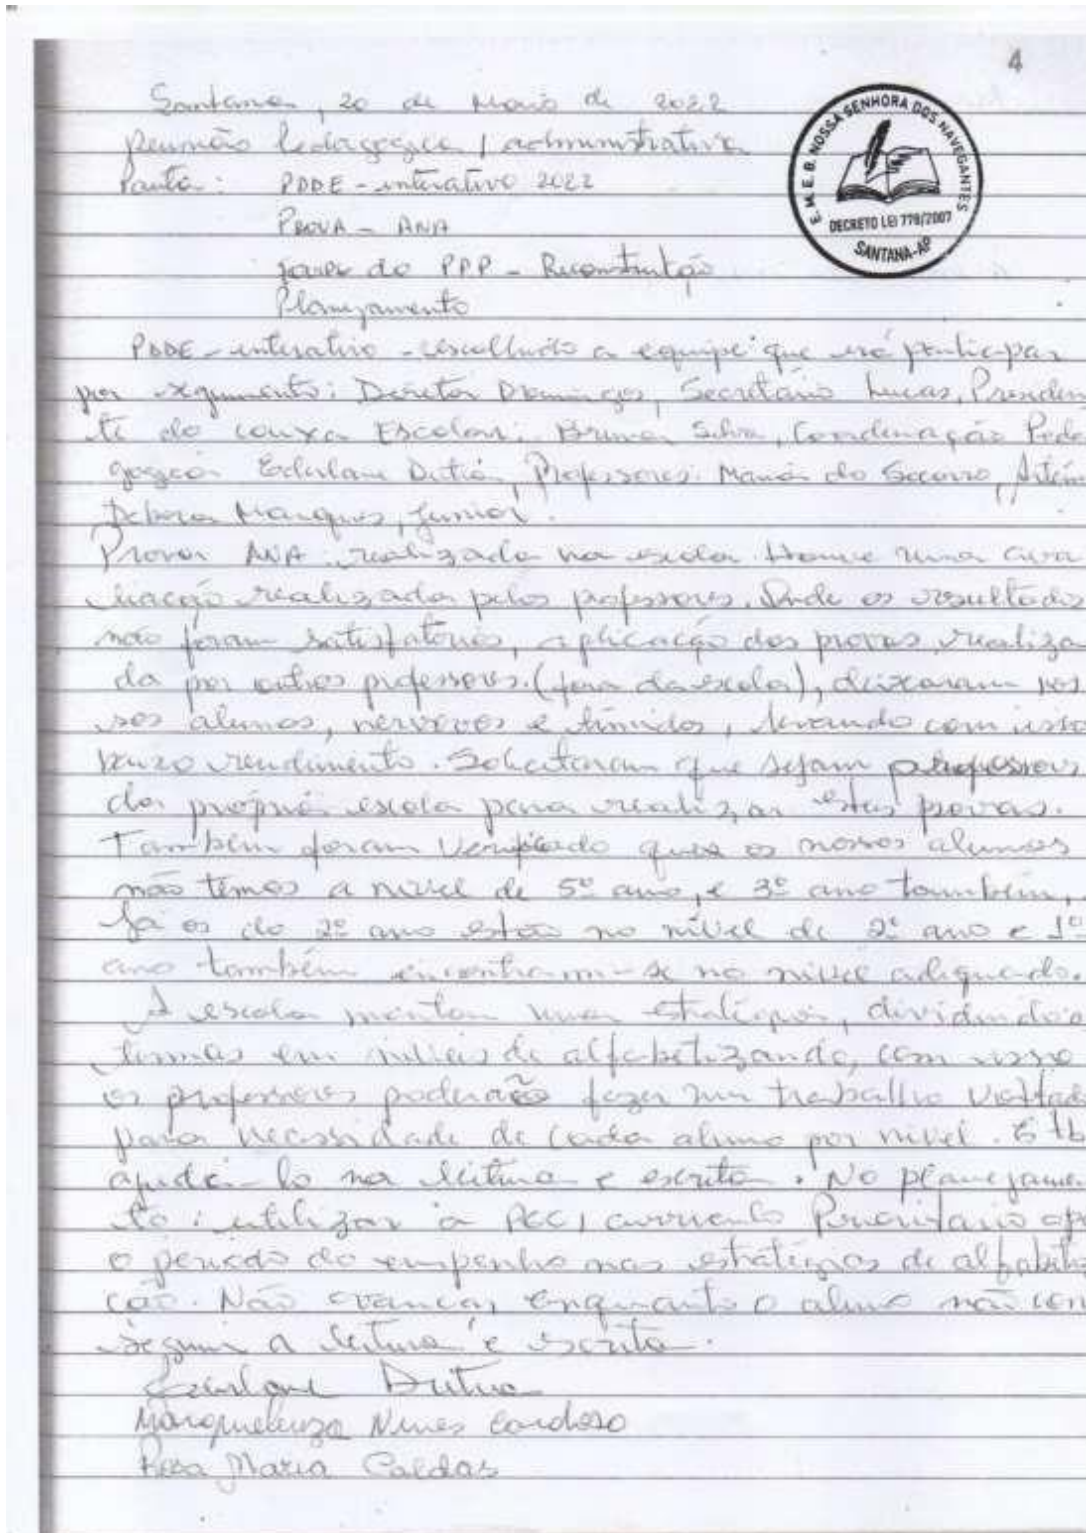 4
Santana, 20 de Maio de 2022
Reunião Pedagogica / administrativa
Pauta: PDDE - interativo 2022
PROVA - ANA
do PPP - Reconstrução
Planejamento
E. M. E. B. NOSSA SENHORA DOS NAVEGANTES
DECRETO LEI 778/2007
SANTANA-AP
PDDE - interativo - escolhido a equipe que irá participar
por segmento: Diretor Domingos, Secretário Lucas, Presiden
te do caixa Escolar: Bruna Silva, Coordenação Peda
gogica Ederlane Dutra, Professores: Maria do Socorro,
Debora Marques, Junior.
Prova ANA: realizada na escola Houve uma ava
liação realizada pelos professores. Onde os resultados
não foram satisfatórios, aplicação das provas realiza
da por outros professores. (fora da escola), deixaram nos
sos alunos, nervosos e tímidos, levando com isso
baixo rendimento. Solicitaram que sejam professores
da própria escola para realizar estas provas.
Também foram verificado que os nossos alunos
não temos a nivel de 5º ano, e 3º ano também,
Já os do 2º ano estão no nível de 2º ano e 1º
ano também encontram-se no nivel adequado.
A escola montou uma estratégia, dividindo a
turmas em niveis de alfabetizando, com isso
os professores poderão fazer um trabalho voltad
para necessidade de cada aluno por nivel.
ajudá-lo na leitura e escrita. No planejamen
to: utilizar a PCC, curriculo Prioritario
o periodo do empenho nas estratégias de alfabetiz
ção. Não avançar, enquanto o aluno não con
seguir a leitura e escrita.
Ederlane Dutra
Nunes Cardoso
Rosa Maria Caldas